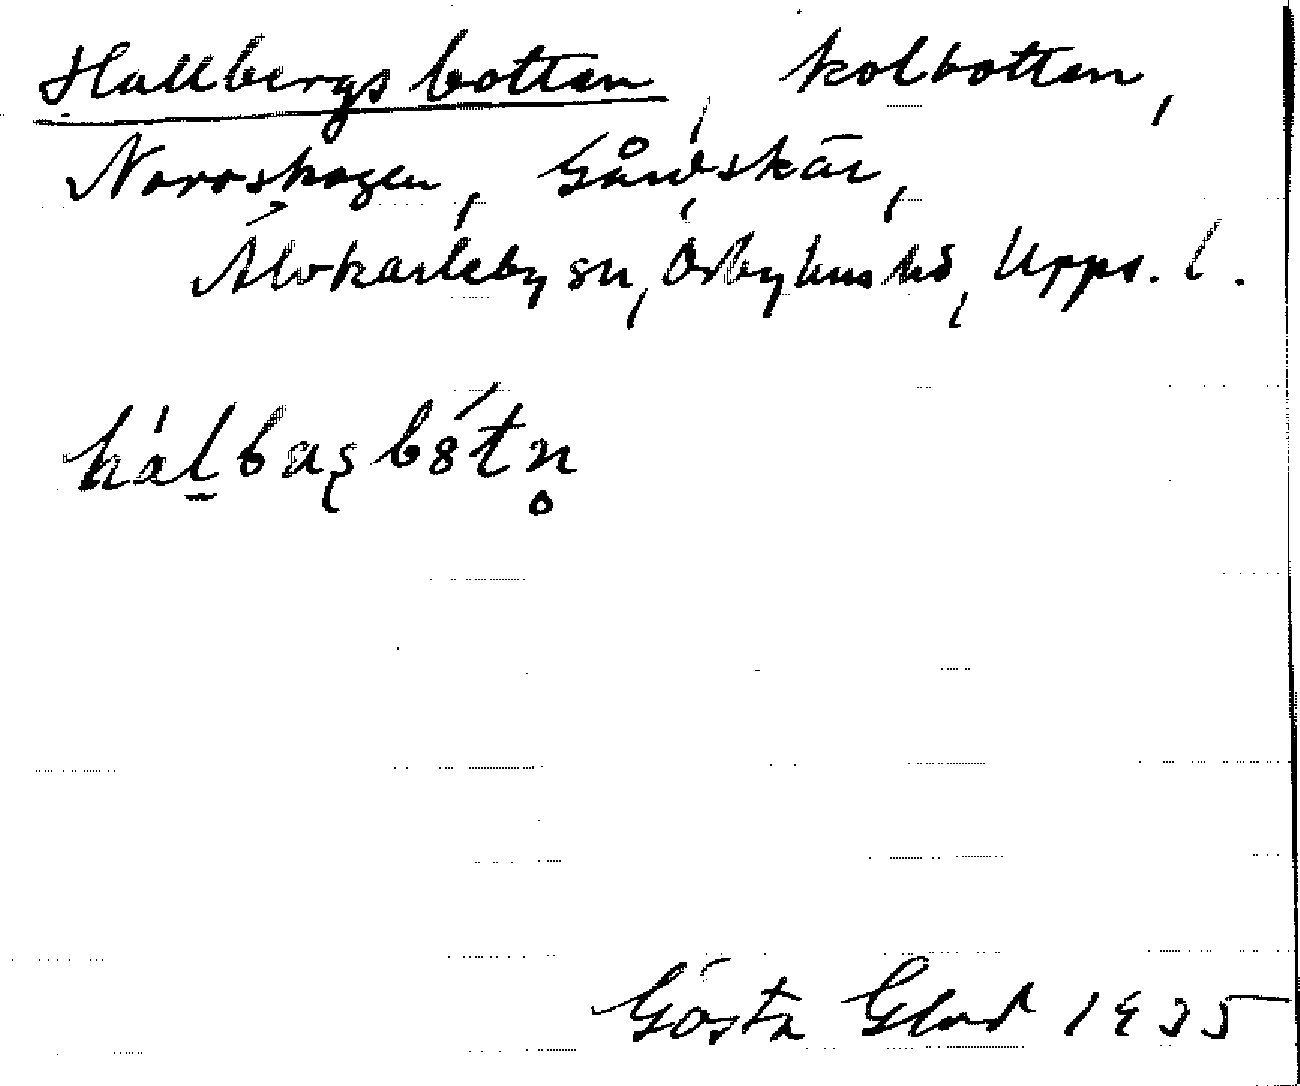 Hallbergsbotten, kolbotten,
Norrskogen, Gårdskär,
Älvkarleby sn, Örbyhus hd, Upps. l.
hálbaʂbótn̥
Gösta Glad 1935